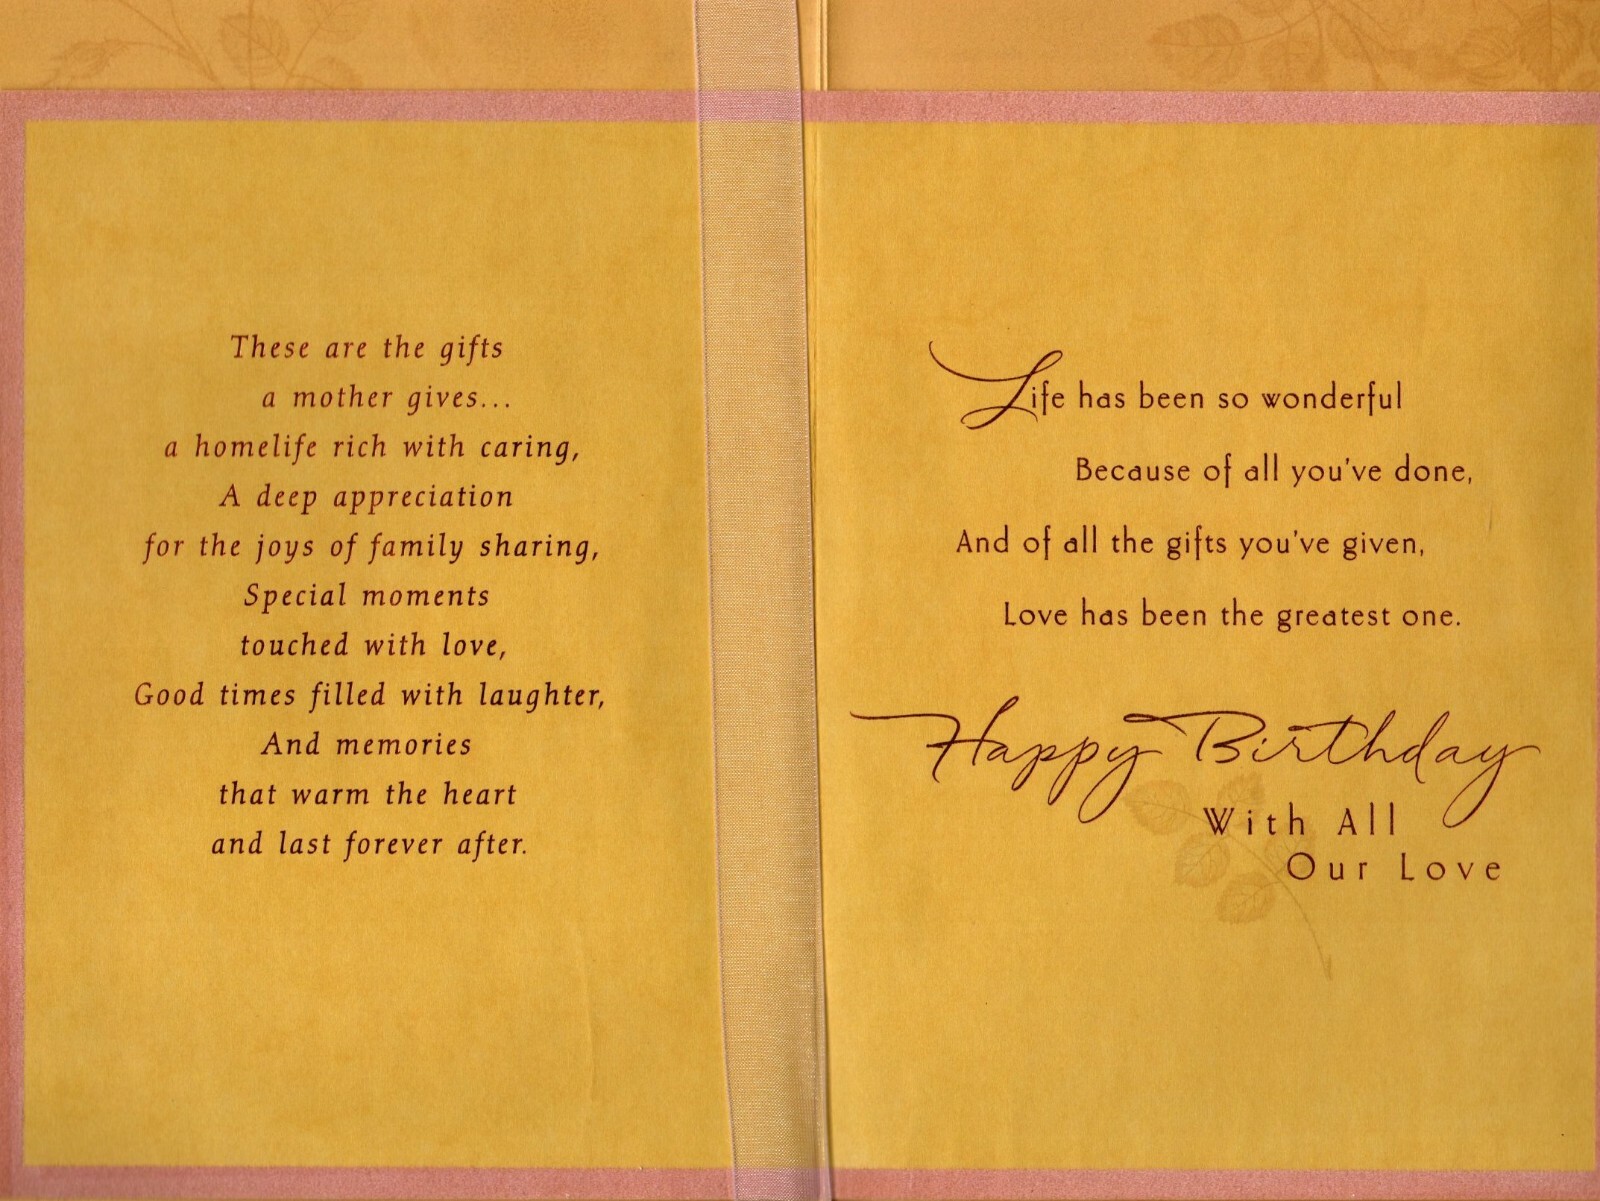 These are the gifts
a mother gives...
a homelife rich with caring,
A deep appreciation
for the joys of family sharing,
Special moments
touched with love,
Good times filled with laughter,
And memories
that warm the heart
and last forever after.
Life has been so wonderful
Because of all you've done,
And of all the gifts you've given,
Love has been the greatest one.
Happy Birthday
With All
Our Love